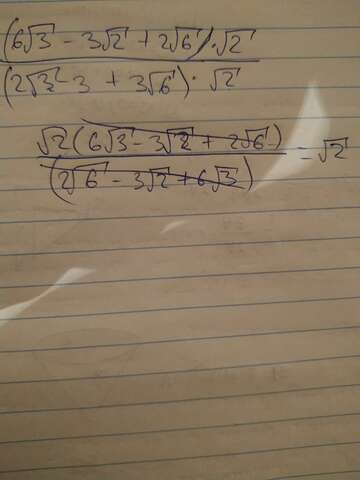 (6√3 - 3√2 + 2√6) · √2
(2√3 - 3 + 3√6) · √2
√2 (6√3 - 3√2 + 2√6)
(2√6 - 3√2 + 6√3) = √2